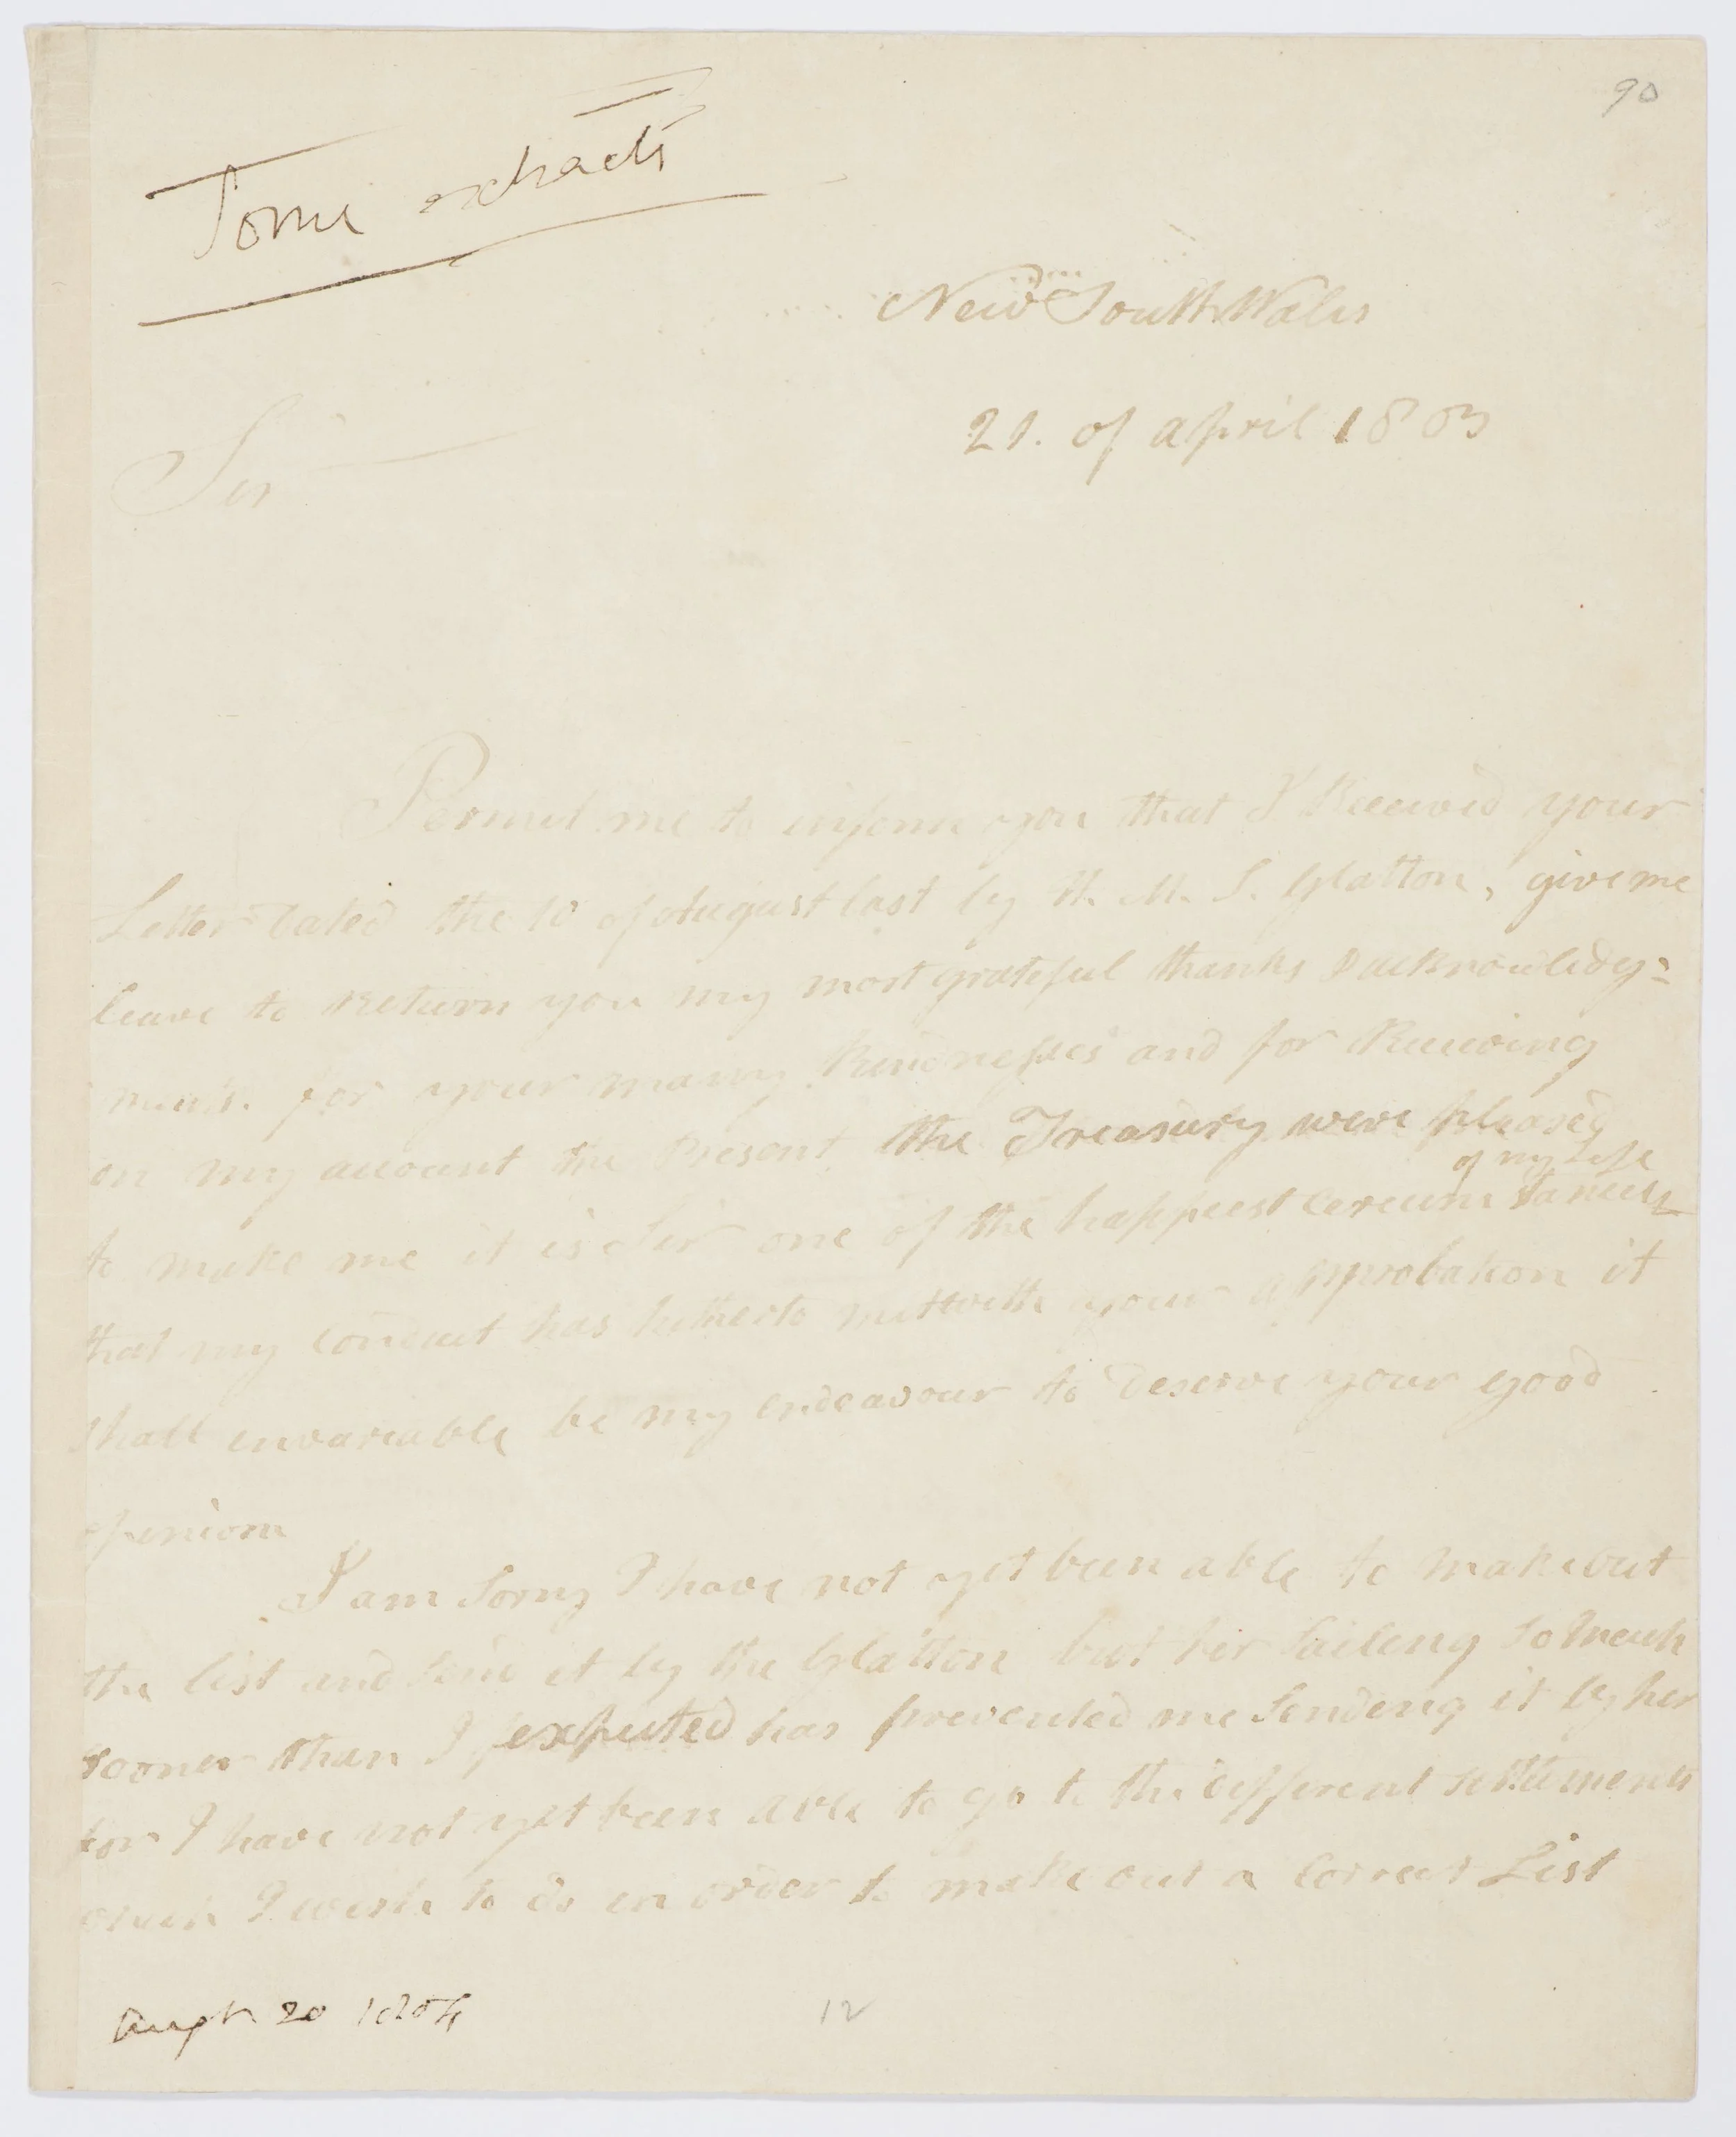 90
Some extracts
New South Wales
21. of april 1803
Sir
Permit me to inform you that I Received your
Letter Dated the 10 of August last by H. M. S. Glatton, give me
leave to Return you my most grateful thanks & acknowledg=
ments. for your many Kindnesses and for Receiving
on my account the Present the Treasury were pleased
of my Life
to make me it is Sir one of the happiest Circumstances
that my Conduct has hitherto mett with your approbation it
shall envariable be my endeavour to Deserve your good
opinion
I am Sorry I have not yet been able to make out
the list and Send it by the Glatton but her Saileng So Much
sooner than I expected has prevented me Sendeng it by her
for I have not yet been able to go to the different settlements
I wish to do in order to make out a Correct List
Augt 20 1804
12